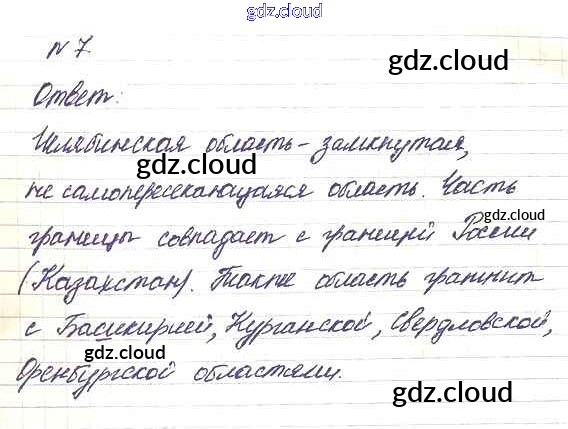 gdz.cloud
N 7.
gdz.cloud
Ответ:
Челябинская область – замкнутая,
gdz.cloud
не самопересекающаяся область. Часть
gdz.cloud
границы совпадает с границей России
(Казахстан). Также область граничит
с Башкирией, Курганской, Свердловской,
gdz.cloud
Оренбургской областями.